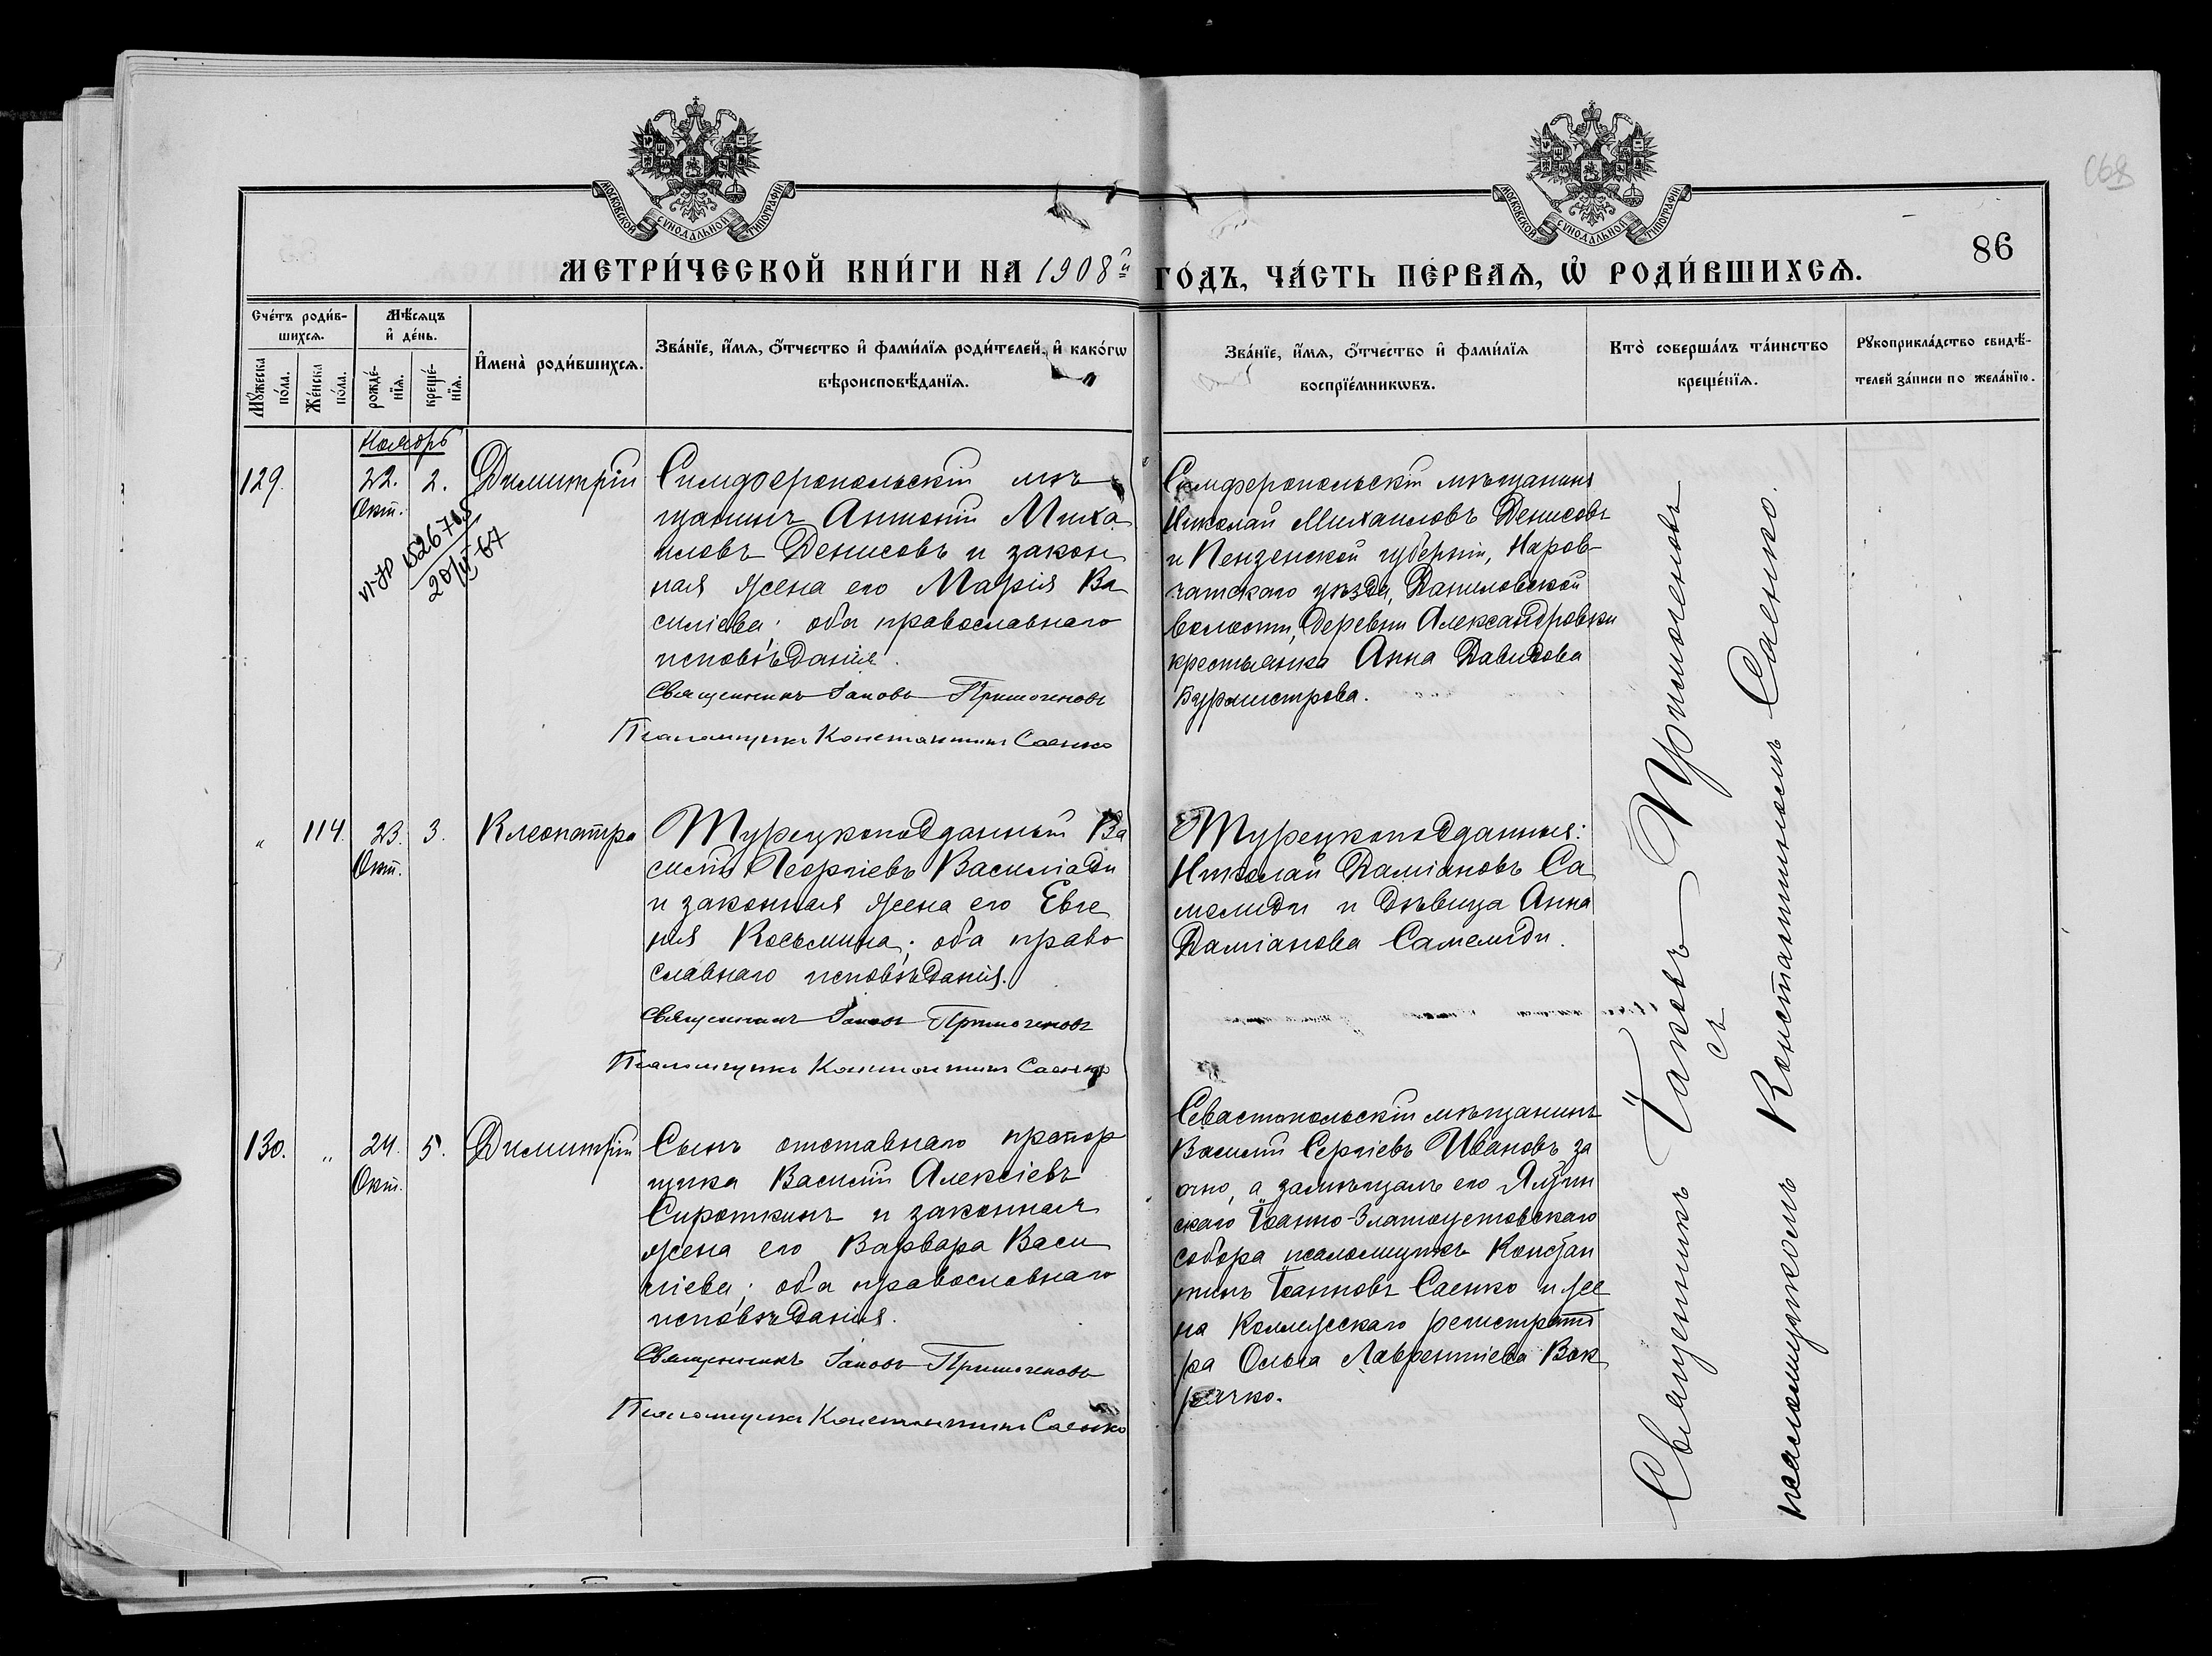 МОСКОВСКОЙ СѴНОДАЛЬНОЙ ТИПОГРАФІИ
МОСКОВСКОЙ СѴНОДАЛЬНОЙ ТИПОГРАФІИ
86
МЕТРИ́ЧЕСКОЙ КНИ́ГИ НА 1908й ГО́ДЪ, ЧА́СТЬ ПЕ́РВАѦ, Ѡ҆ РОДИ́ВШИХСѦ.
Сче́тъ роди́в-
шихсѧ.
Мѣ́сѧцъ
и҆ де́нь.
Мꙋ́жеска
по́ла.
Же́нска
по́ла.
рожде́-
нїѧ.
креще́-
нїѧ.
И҆мена̀ роди́вшихсѧ.
Зва́нїе, и҆́мѧ, ѻ҆́тчество и҆ фами́лїѧ роди́телей, и҆ како́гѡ
вѣроисповѣ́данїѧ.
Зва́нїе, и҆́мѧ, ѻ҆́тчество и҆ фами́лїѧ
воспрїе́мникѡвъ.
Кто̀ соверша́лъ та́инство
креще́нїѧ.
Рꙋкоприкла́дство свидѣ́-
телей за́писи по жела́нїю.
Ноябрь
129.
22.
Окт.
2.
Димитрій
Симферопольскій мѣ
щанинъ Антоній Миха
иловъ Денисовъ и закон
ная жена его Марія Ва
силіева; оба православнаго
исповѣданія.
Священникъ Іаковъ Примогеновъ
Псаломщикъ Константинъ Саенко
Симферопольскій мѣщанинъ
Николай Михаиловъ Денисовъ
и Пензенской губерніи, Наров-
чатскаго уѣзда, Даниловской
волости, деревни Александровки
крестьянка Анна Давидова
Бурмистрова.
"
114.
23.
Окт.
3.
Клеопатра
Турецкоподданный Ва
силій Георгіевъ Василіади
и законная жена его Евге
нія Косьмина; оба право
славнаго исповѣданія.
Священникъ Іаковъ Примогеновъ
Псаломщикъ Константинъ Саенко
Турецкоподданные:
Николай Даміановъ Са
мелиди и дѣвица Анна
Даміанова Самелиди.
130.
"
24.
Окт.
5.
Димитрій
Сынъ отставнаго прапор
щика Василій Алексіевъ
Сироткинъ и законная
жена его Варвара Васи
ліева; оба православнаго
исповѣданія.
Священникъ Іаковъ Примогеновъ
Псаломщикъ Константинъ Саенко
Севастопольскій мѣщанинъ
Василій Сергіевъ Ивановъ за
очно, а замѣщалъ его Ялтин
скаго Іоанно-Златоустовскаго
собора псаломщикъ Констан
тинъ Іоанновъ Саенко и же
на Коллежскаго регистрато
ра Ольга Лаврентіева Вок
рячко.
Священникъ Іаковъ Примогеновъ
съ
псаломщикомъ Константиномъ Саенко.